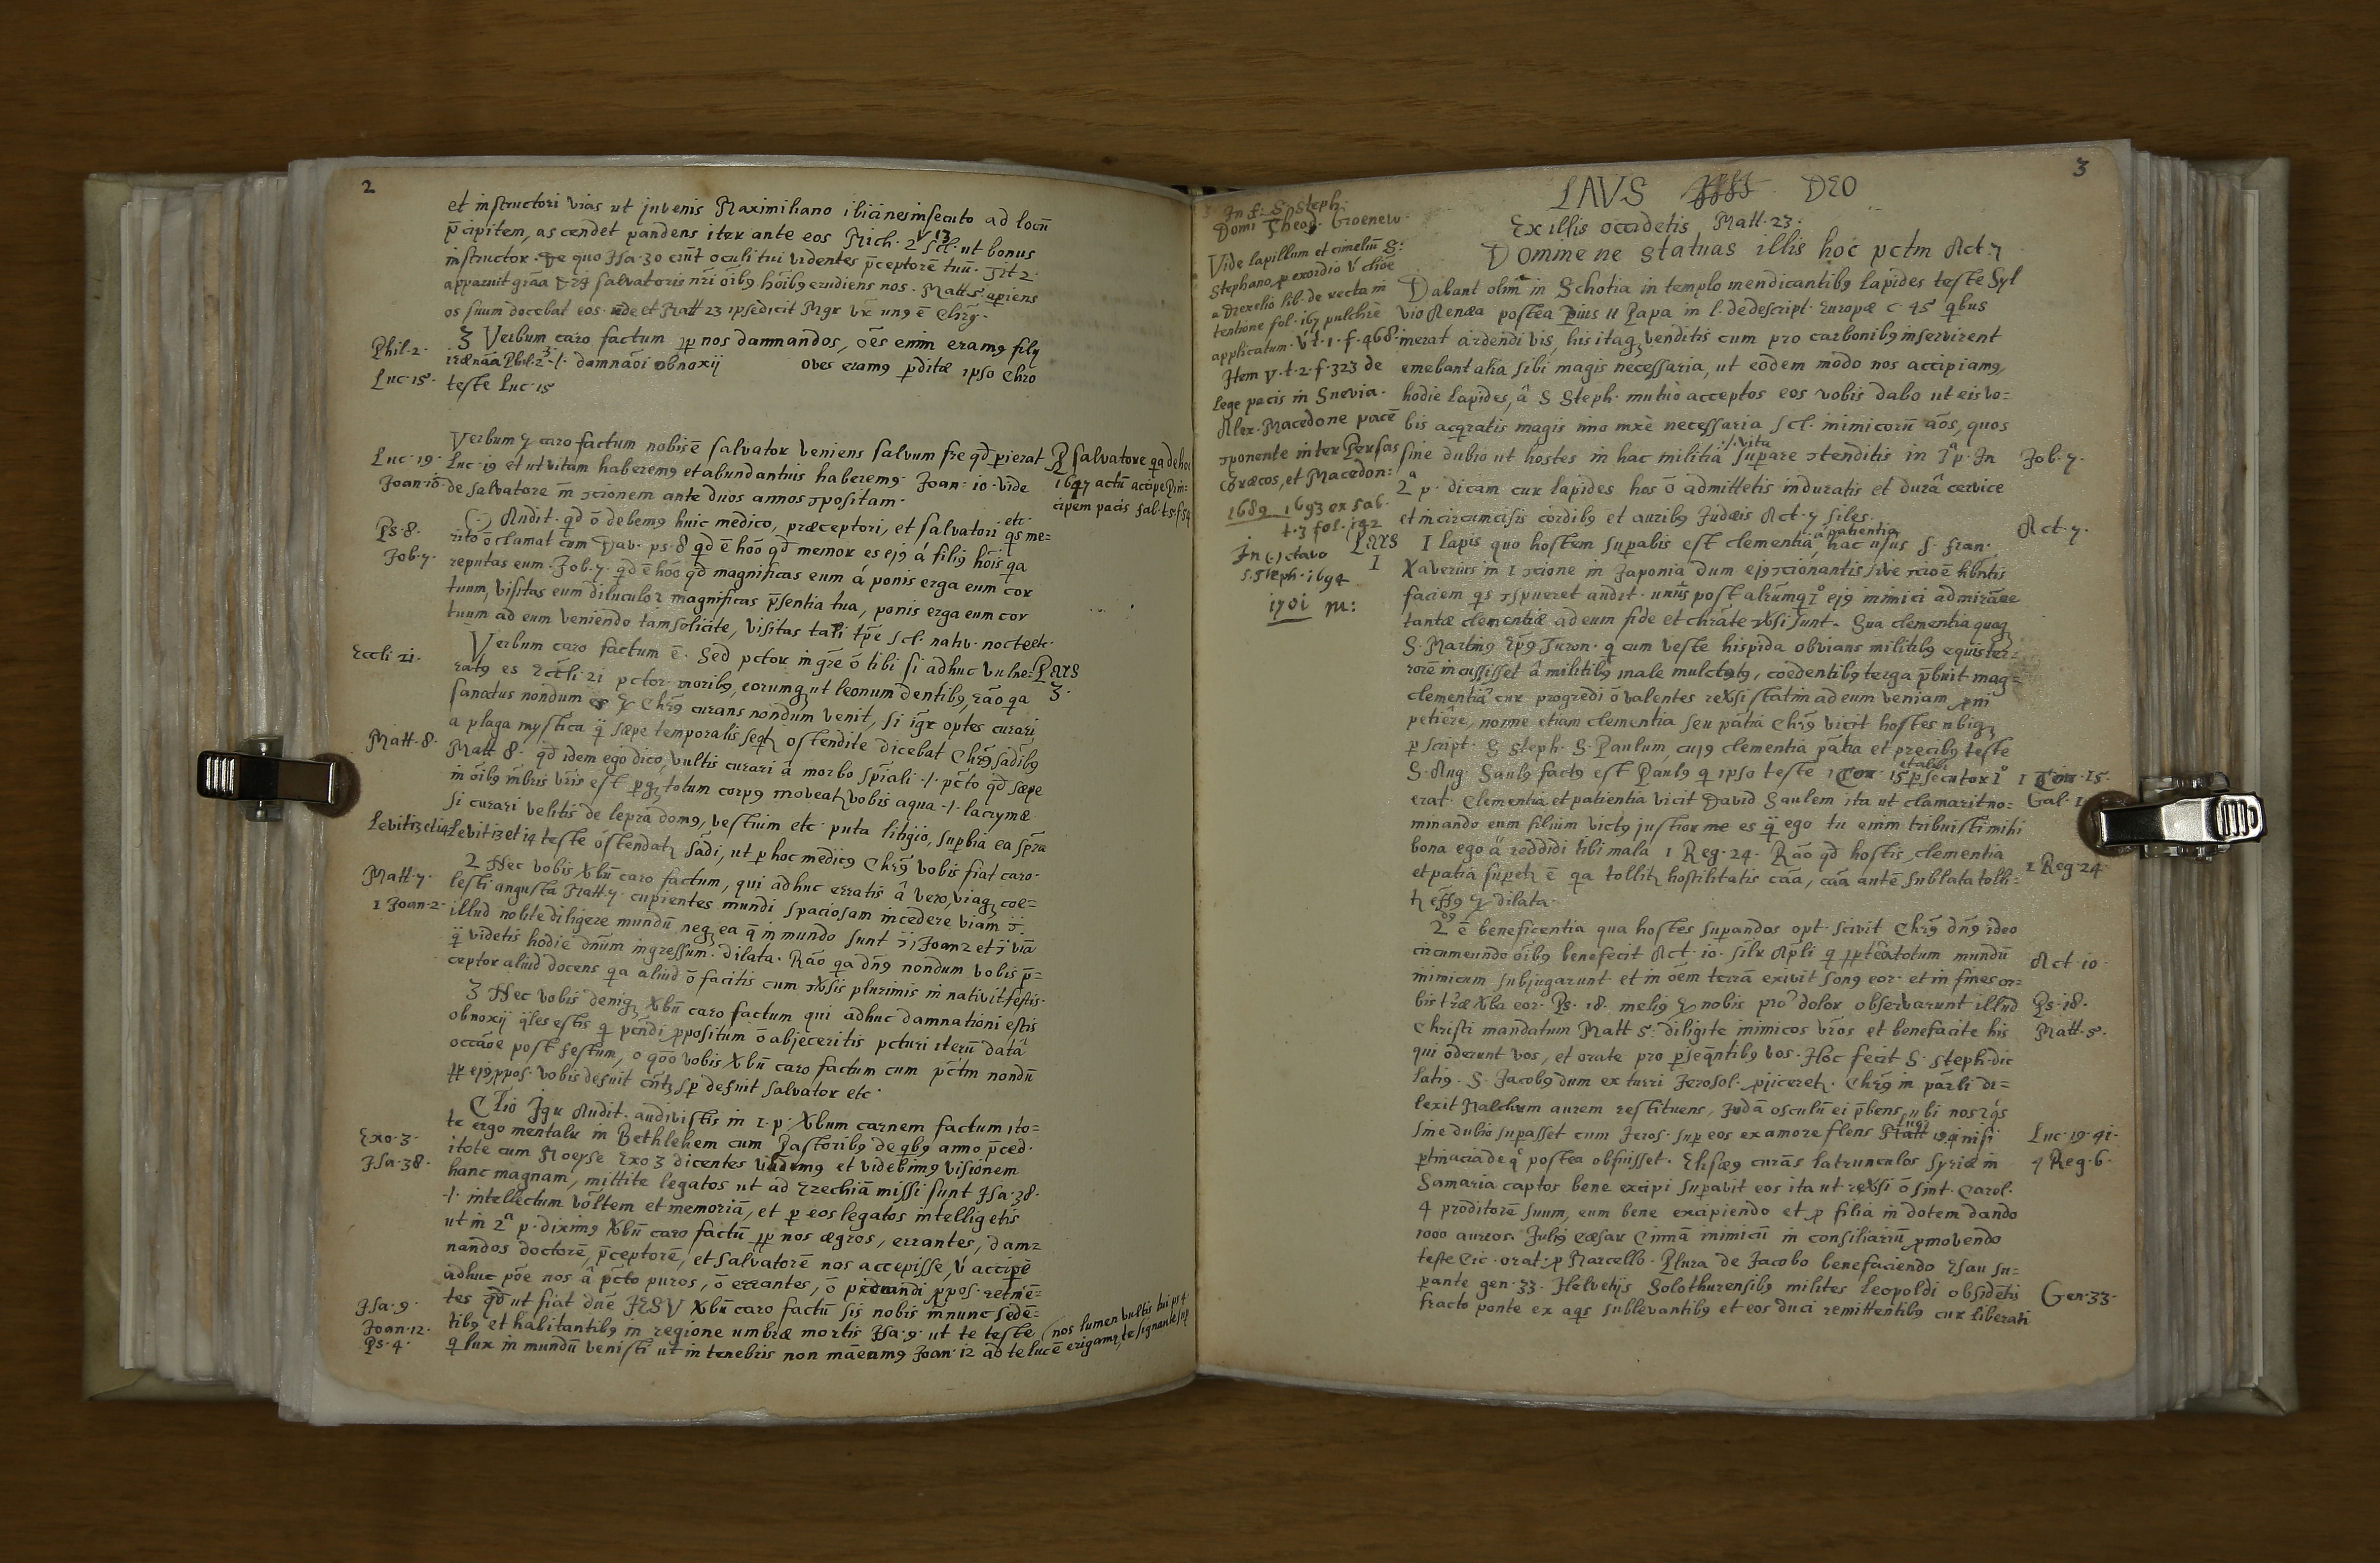 2
et instructori vias ut juvenis Maximiliano ibicines insecuto ad locū
p̄cipitem, ascendet pandens iter ante eos Mich. 2 v 13 scl. ut bonus
instructor. de quo Isa. 30 erūt oculi tui videntes p̄ceptorē tuū. Tit 2.
apparuit grāa Dei salvatoris nr̄i ōibꝯ hōibꝯ erudiens nos. Matt 5 aperiens
os suum docebat eos. unde et Matt 23 ipse dicit Mgr vr̄ unꝯ ē Chr̄ꝯ.
Phil. 2.
3 Verbum caro factum ꝓp nos damnandos, ōēs enim eramꝯ filij
iræ nāa Phil. 2. 3 ·/· damnāoi obnoxij oves eramꝯ p̱ditæ ipso Chr̄o
Luc. 15.
teste Luc. 15
Verbum caro factum nobis ē salvator veniens salvum fr̄e qd̄ p̱ierat
Luc. 19.
Luc. 19 et ut vitam haberemꝯ et abundantius haberemꝯ. Joan: 10. vide
Joan. 10.
de salvatore m̄ ɔcionem ante duos annos ɔpositam.
P̱ Salvatore q̱a de hoc
1697 actū accipe Prin:
cipem pacis Sal. t. 5. f. 54
(·) Audit. qd̄ ō debemꝯ huic medico, præceptori, et salvatori etc. qs me=
Ps. 8.
rito ō clamat cum Dav. ps. 8 qd̄ ē hōo qd̄ memor es ejꝯ á filiꝯ hōis qa
Job. 7.
reputas eum. Job. 7. qd̄ ē hōo qd̄ magnificas eum á ponis erga eum cor
tuum, visitas eum diluculo? magnificas p̄sentia tua, ponis erga eum cor
tuum ad eum veniendo tam solicite, visitas tali tp̄e scl. nativ. nocte etc.
Verbum caro factum ē. Sed pctor in gr̄e ō tibi si adhuc vulne=
Pars
3.
Eccli 21.
ratꝯ es Eccli 21 pctor. moribꝯ, eorumqꝫ ut leonum dentibꝯ, rāo qa
sanatus nondum es Chr̄ꝯ curans nondum venit, si igr optes curari
a plaga mystica q̄ sæpe temporalis seqtꝫ ostendite dicebat Chr̄ꝯ sādibꝯ
Matt. 8.
Matt 8. qd̄ idem ego dico, vultis curari á morbo sp̄iali ·/· pc̄to qd̄ sæpe
in ōibꝯ m̄bris vr̄is est p̱gꝫ totum corpꝯ moveatꝫ vobis aqua ·/· lacrymæ
si curari velitis de lepra domꝯ, vestium etc puta litigio, supbia ea sp̄ra
Levit 13 et 14
Levit 13 et 14 teste ostendatꝫ sādi, ut p hoc medicꝯ Chr̄ꝯ vobis fiat caro.
2 Nec vobis Ꝟbū caro factum, qui adhuc erratis â vero, viaqꝫ coe=
Matt. 7.
lesti angusta Matt. 7. cupientes mundi spaciosam incedere viam
1 Joan. 2.
illud nolite diligere mundū neqꝫ ea q̄ in mundo sunt Joan 2 et viā
q̄ videtis hodie dn̄um ingressum. dilata. Rāo qa dn̄ꝯ nondum vobis p̄=
ceptor aliud docens qa aliud ō facitis cum ɔꝞsis plurimis in nativit festis.
3 Nec vobis deniqꝫ Ꝟbū caro factum qui adhuc damnationi estis
obnoxij q̄les estis q̱ pcn̄di ꝓpositum ō abjeceritis pcturi iterū datâ
occāoe post festum, o qōo vobis Ꝟbū caro factum cum pc̄tm nondū
ꝓp ejꝯ ꝓpos. vobis desuit cn̄tꝫ sp̱ defuit salvator etc.
Cl̄io Igr Audit. audivistis in 1. p. Ꝟbum carnem factum ito=
te ergo mentalr in Bethlehem cum Pastoribꝯ de qbꝯ anno p̄ced.
Exo. 3.
itote cum Moyse Exo 3 dicentes vadamꝯ et videbimꝯ visionem
Isa. 38.
hanc magnam, mittite legatos ut ad Ezechiā missi sunt Isa. 38.
·/· intellectum vōltem et memoriā, et p eos legatos intelligetis
ut in 2ª p. diximꝯ Ꝟbū caro factū ꝓp nos ægros, errantes, dam=
nandos doctorē, p̄ceptorē, et salvatorē nos accepisse, v́ accip̱ē
adhuc pōe nos â pc̄to puros, ō errantes, ō pecandi ꝓpos. retinē=
tes qd̄ ut fiat dn̄e JESV Ꝟbū caro factū sis nobis m̄ nunc sedē=
Isa. 9.
tibꝯ et habitantibꝯ in regione umbræ mortis Isa. 9. ut te teste
Joan. 12.
Ps. 4.
q̱ lux in mundū venisti ut in tenebris non māeamꝯ Joan. 12 ad te lucē erigamꝯ, te signante sup
nos lumen vultus tui ps 4.
3
LAVS DEO
Ex illis occidetis Matt. 23.
Domine ne statuas illis hoc pctm Act. 7
In f. S. Steph.
Domi Theod. Groenew.
Vide lapillum et cimeliū S:
Stephano p exordio v́ clioe
a Drexelio lib. de recta in
tentione fol. 167 pulchrè
applicatum. V. t. 1. f. 468.
Item v. t. 2. f. 323 de
lege pacis in Suevia.
Alex. Macedone pacē
ɔponente inter Persas
Græcos, et Macedon:
1689 1693 ex sal.
t. 3 fol. 192
In (·) ctavo
S. Steph. 1694
1701 m:
Dabant olim in Schotia in templo mendicantibꝯ lapides teste Syl
vio Aenæa postea Pius 11 Papa in l. de descript. Europæ c. 45 qbus
inerat ardendi vis, his itaqꝫ venditis cum pro carbonibꝯ inservirent
emebant alia sibi magis necessaria, ut eodem modo nos accipiamꝯ
hodie lapides, â S Steph. mutuò acceptos eos vobis dabo ut eis vo=
bis acqratis magis imo mxè necessaria scl. inimicorū āos, quos
sine dubio ut hostes in hac militiâ ·/· vita supare ɔtenditis in 1ª p. In
Job. 7.
2ª p. dicam cur lapides hos ō admittetis induratis et durâ cervice
et incircumcisis cordibꝯ et auribꝯ Judæis Act. 7 siles.
Act. 7.
Pars
I
I lapis quo hostem supabis est clementia, á patientia, hac usus S. Fran:
Xaverius in 1 ɔcione in Japonia dum ejꝯ ɔcionantis sive ɔcioē hbntis
faciem qs ɔspueret audit. uniꝰ post alrumqꝫ 1º ejꝯ inimici admirāoe
tantæ clementiæ ad eum fide et chrāte ɔꝞsi sunt. Sua clementia quaqꝫ
S. Martinꝯ Ep̄ꝯ Turon. q̱ cum veste hispida obvians militibꝯ equis ter=
rorē incussisset â militibꝯ male mulctatꝯ, cœdentibꝯ terga p̄buit mag=
clementiâ cur progredi ō valentes reꝞsi statim ad eum veniam
petiêre, nonne etiam clementia seu pātia Chr̄ꝯ vicit hostes ubiqꝫ
p script. S Steph. S. Paulum, cujꝯ clementia pātia et precibꝯ teste
S. Aug. Saulꝯ factꝯ est Paulꝯ q̱ ipso teste 1 Cor. 15 et alibi p̱secutor 1º
1 Cor. 15.
Gal. 1
erat. Clementia et patientia vicit David Saulem ita ut clamarit no=
minando eum filium victꝯ justior me es q̄ ego tu enim tribuisti mihi
bona ego á reddidi tibi mala 1 Reg. 24. Rāo qd̄ hostis clementia
1 Reg. 24.
et patiâ supetꝫ ē qa tollitꝫ hostilitatis cāa, cāa antē sublata tolli=
tꝫ eff̄ꝯ dilata.
2dꝯ ē beneficentia qua hostes supandos opt. scivit Chr̄ꝯ dn̄ꝯ ideo
circumeundo ōibꝯ benefecit Act. 10. silr Apli q̱ totum mundū
Act. 10.
inimicum subjugarunt et in ōem terrā exivit sonꝯ eor. et in fines or=
bis trræ Ꝟba eor. Ps. 18. meliꝯ nobis pro dolor observarunt illud
Ps. 18.
Christi mandatum Matt 5. diligite inimicos vr̄os et benefacite his
Matt. 5.
qui oderunt vos, et orate pro p̱seqntibꝯ vos. Hoc fecit S. Steph. dic
latiꝯ. S. Jacobꝯ dum ex turri Jerosol. ꝓjiceretꝫ. Chr̄ꝯ in pārli di=
lexit Malchum aurem restituens, Judā osculū ei p̄bens, ubi nos rōs
sine dubio supasset cum Jeros. sup eos ex amore flens Luc 19.41 nisi
Luc. 19. 41.
p̱tinacia de qº postea obfuisset. Elisæꝯ curās latrunculos Syriæ in
4 Reg. 6.
Samaria captos bene excipi supavit eos ita ut reꝞsi ō sint. Carol.
4 proditorē suum, eum bene excipiendo et p filia in dotem dando
1000 aureos. Juliꝯ Cæsar Cinnā inimicū in consiliariū ꝓmovendo
teste Cic. orat. p Marcello. Plura de Jacobo benefaciendo Esau su=
pante gen. 33. Helvetijs Solothurensibꝯ milites Leopoldi obsidētis
Gen. 33.
fracto ponte ex aqs sublevantibꝯ et eos duci remittentibꝯ cur liberati